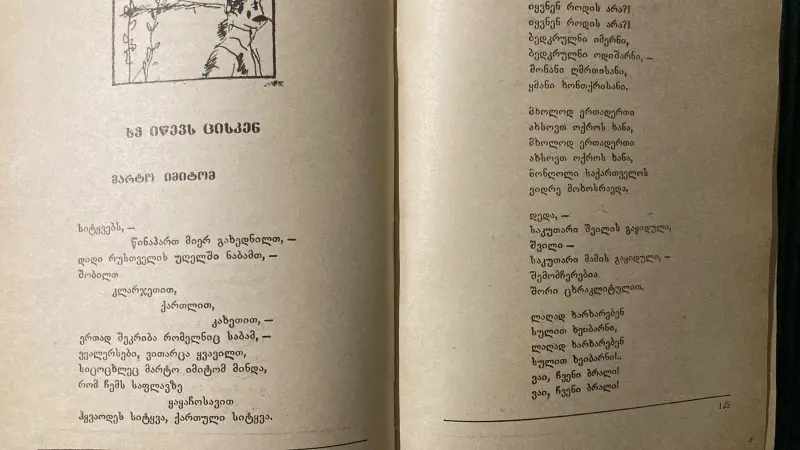 ხე იწევს ცისკენ
მარტო იმიტომ
სიტყვებს, —
წინაპართ მიერ გახედნილთ, —
დიდი რუსთველის უღელში ნაბამთ, —
შობილთ
კლარჯეთით,
ქართლით,
კახეთით, —
ერთად შეკრიბა რომელნიც საბამ, —
ვეალერსები, ვითარცა ყვავილთ,
სიცოცხლეც მარტო იმიტომ მინდა,
რომ ჩემს საფლავზე
ყაყაჩოსავით
ჰყვაოდეს სიტყვა, ქართული სიტყვა.
იყვნენ როდის არა?!
იყვნენ როდის არა?!
ბედკრულნი იმერნი,
ბედკრულნი ოდიშარნი, —
მონანი ღმრთისანი,
ყმანი ხონთქრისანი.
მხოლოდ ერთადერთი
ახსოვთ ოქროს ხანა,
მხოლოდ ერთადერთი
ახსოვთ ოქროს ხანა,
მონღოლი საქართველოს
ვიდრე მოხოსრავდა.
დედა, —
საკუთარი შვილის გაყიდული,
შვილი —
საკუთარი მამის გაყიდული, —
შემომჩერებია
შორი ცხრაკლიტულით.
ლაღად ხარხარებენ
სულით ხეიბარნი,
ლაღად ხარხარებენ
სულით ხეიბარნი!..
ვაი, ჩვენი ბრალი!
ვაი, ჩვენი ბრალი!